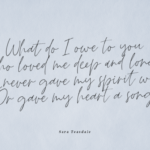 What do I owe to you
who loved me deep and long
never gave my spirit w
Or gave my heart a song
Sara Teasdale